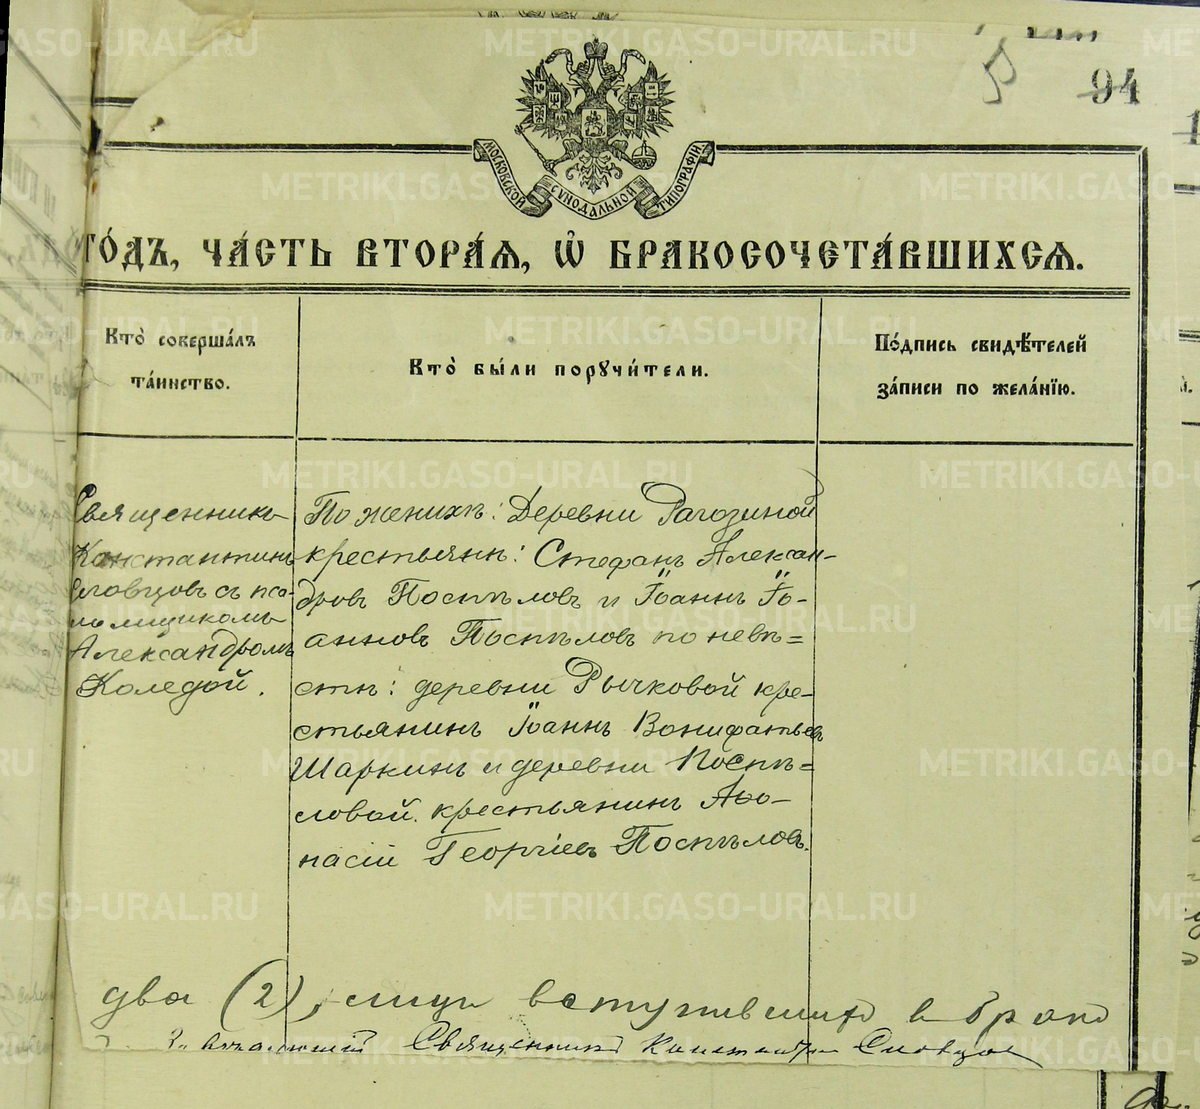 94
МОСКОВСКОЙ СѴНОДАЛЬНОЙ ТИПОГРАФІИ
ГО́ДЪ, ЧА́СТЬ ВТОРА́Ѧ, Ѡ҆ БРАКОСОЧЕТА́ВШИХСѦ.
Кто̀ соверша́лъ
та́инство.
Кто̀ бы́ли порꙋчи́тели.
По́дпись свидѣ́телей
за́писи по жела́нїю.
Священникъ
Константинъ
Словцовъ съ пса-
ломщикомъ
Александромъ
Коледой.
По женихѣ: Деревни Рагозиной
крестьяне: Стефанъ Алексан-
дровъ Поспѣловъ и Іоаннъ Іо-
анновъ Поспѣловъ по невѣ=
стѣ: деревни Рычковой кре-
стьянинъ Іоаннъ Вонифатьевъ
Шаркинъ и деревни Поспѣ=
ловой крестьянинъ Аѳо-
насій Георгіевъ Поспѣловъ.
два (2), лица вступившихъ в бракъ
Священникъ Константинъ Словцов
METRIKI.GASO-URAL.RU